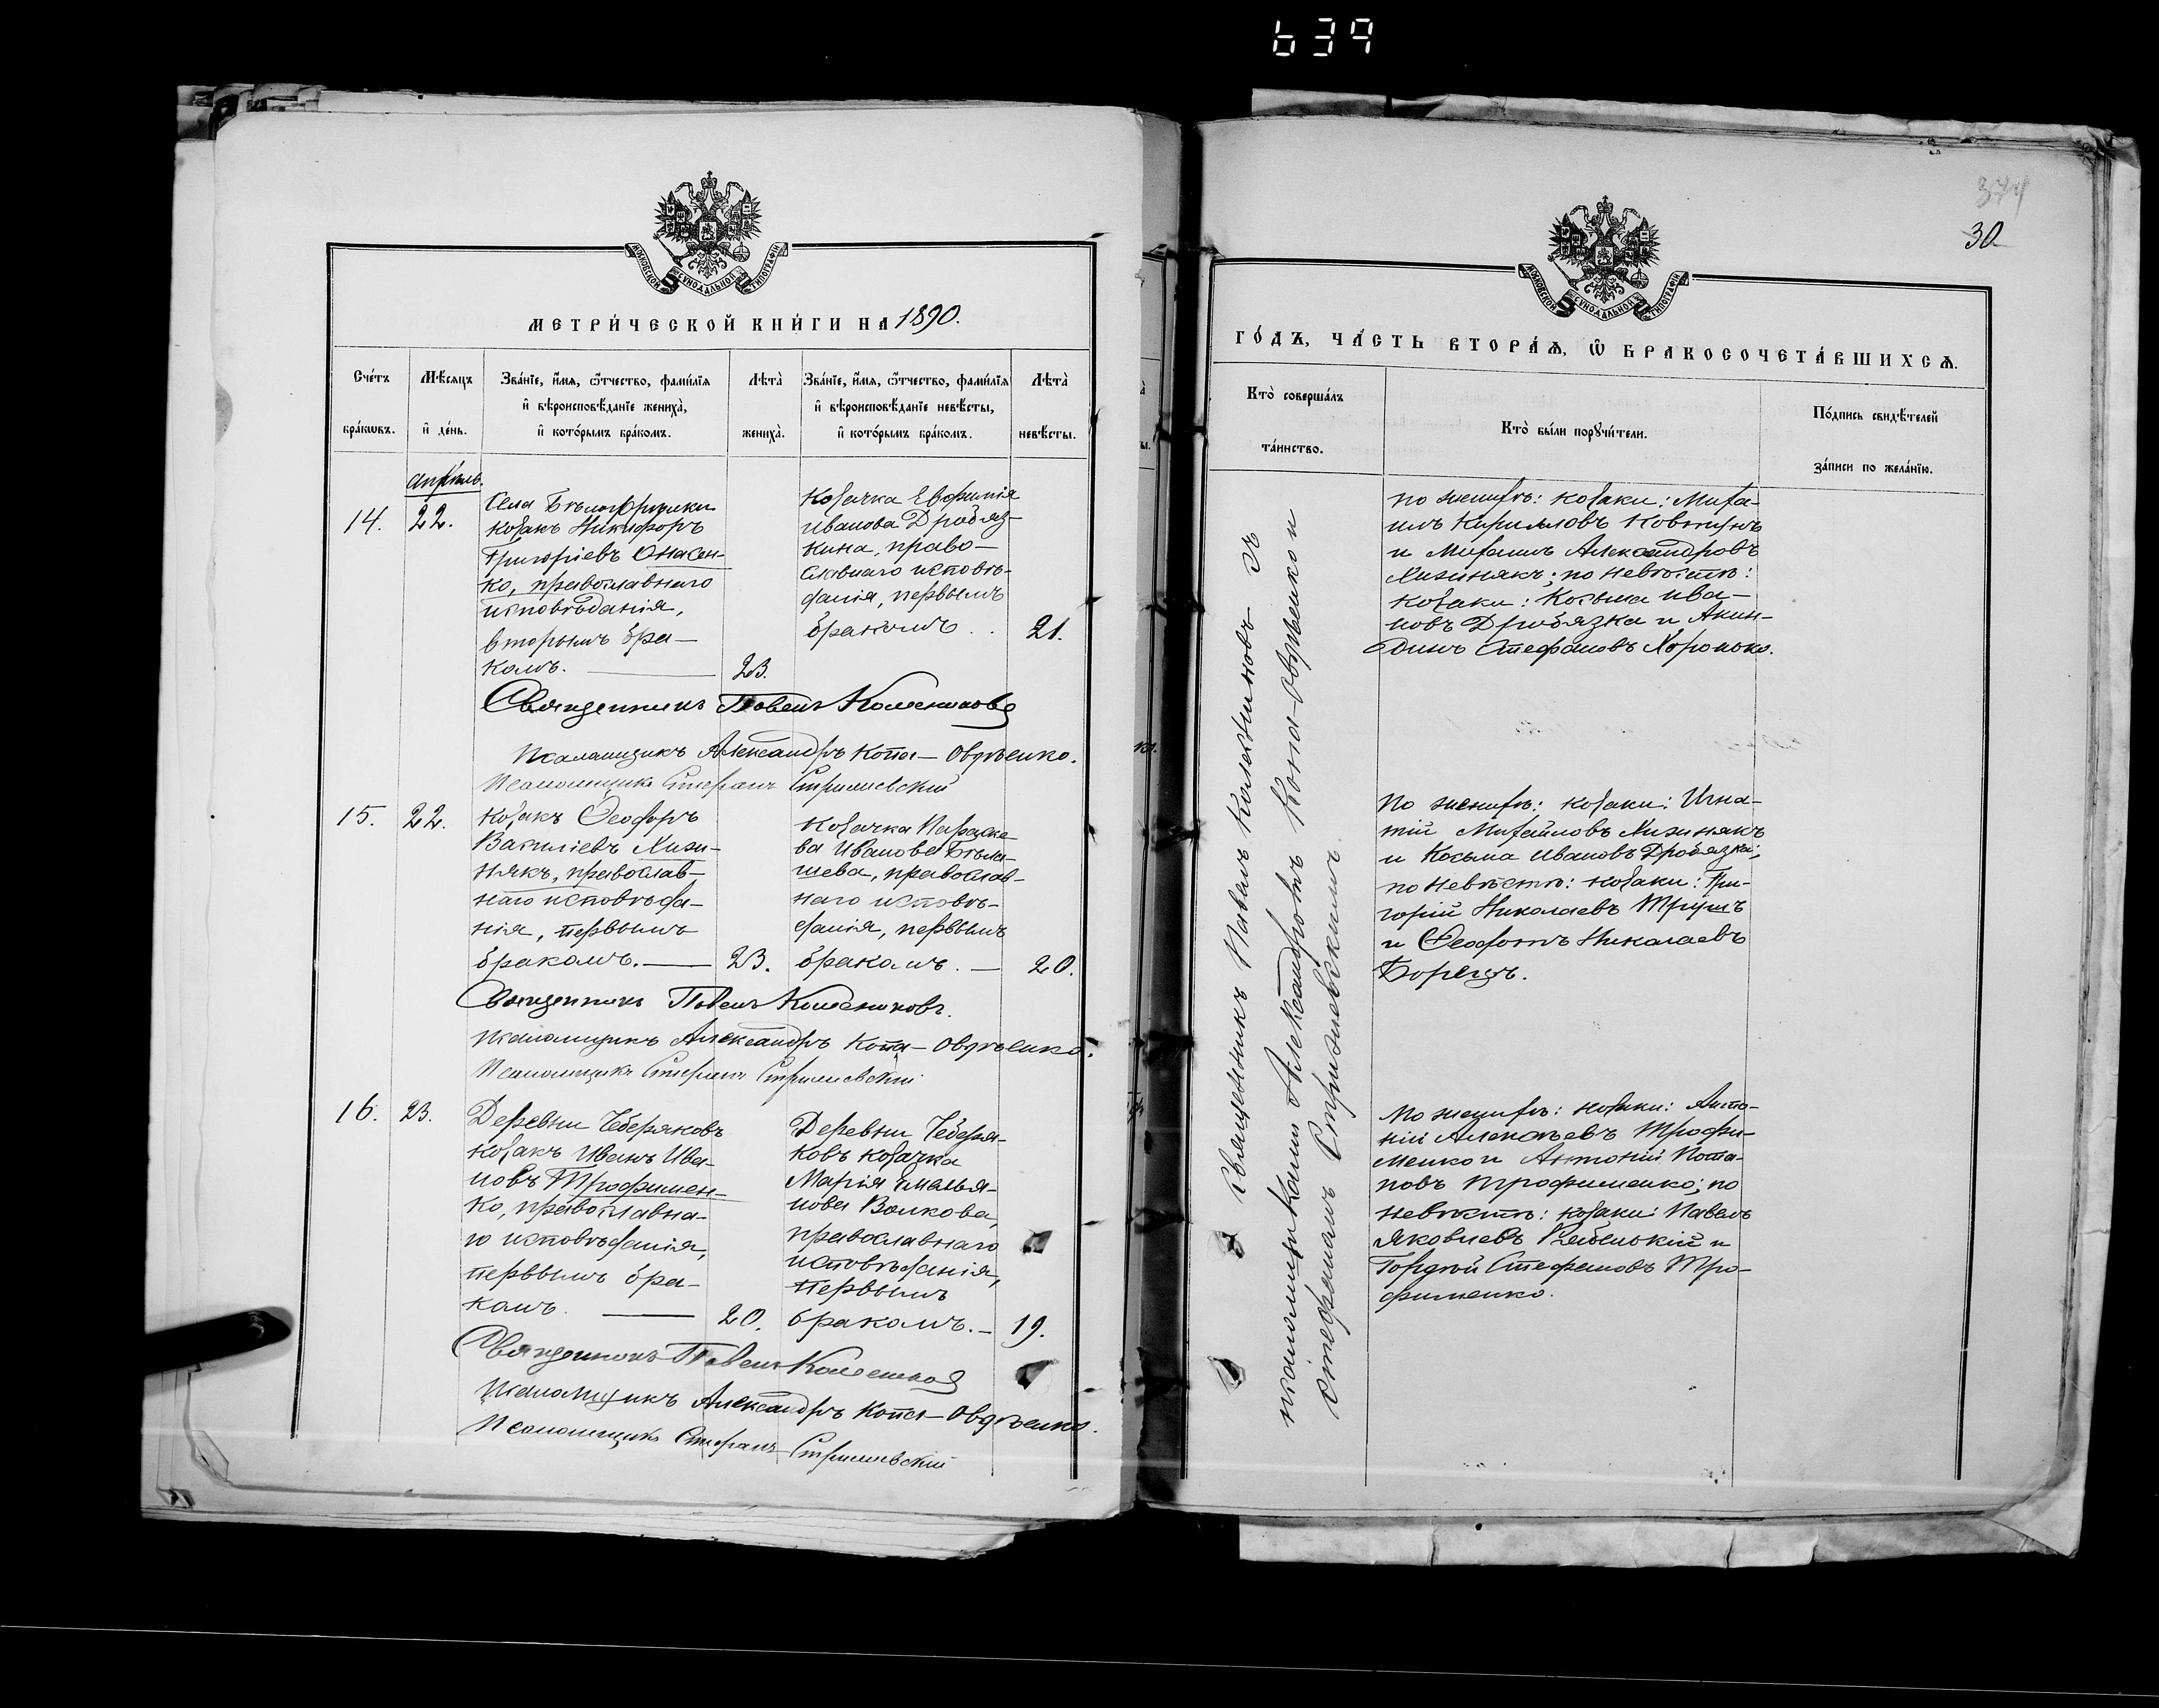 639
МОСКОВСКОЙ СѴНОДАЛЬНОЙ ТИПОГРАФІИ
МЕТРИ́ЧЕСКОЙ КНИ́ГИ НА 1890.
Сче́тъ бра́кѡвъ.
Мѣ́сяцъ и҆ де́нь.
Зва́нїе, и҆́мя, ѻ҆́тчество, фами́лїя
и҆ вѣроисповѣ́данїе жениха̀,
и҆ кото́рымъ бра́комъ.
Лѣ́та жениха̀.
Зва́нїе, и҆́мя, ѻ҆́тчество, фами́лїя
и҆ вѣроисповѣ́данїе невѣ́сты,
и҆ кото́рымъ бра́комъ.
Лѣ́та невѣ́сты.
Апрѣль.
14.
22.
Села
козакъ Никифоръ
Григоріевъ Онасен-
ко, православнаго
исповѣданія,
вторымъ бра-
комъ.
23.
Козачка Евфимія
Иванова Дробяз-
кина, право-
славнаго исповѣ-
данія, первымъ
бракомъ.
21.
Священникъ Павелъ Колесниковъ
Псаломщикъ Александръ Копа-Овдѣенко.
Псаломщикъ Стефанъ Стрижевскій
15.
22.
Козакъ Ѳеодоръ
Василіевъ Хижи-
някъ, православ-
наго исповѣда-
нія, первымъ
бракомъ.
23.
Козачка Параске-
ва Иванова Бѣла-
шева, православ-
наго исповѣ-
данія, первымъ
бракомъ.
20.
Священникъ Павелъ Колесниковъ.
Псаломщикъ Александръ Копа-Овдѣенко.
Псаломщикъ Стефанъ Стрижевскій
16.
23.
Деревни Чеберяковъ
козакъ Иванъ Ива-
новъ Трофимен-
ко, православна-
го исповѣданія,
первымъ бра-
комъ.
20.
Деревни Чеберя-
ковъ козачка
Марія Емелья-
нова Волкова,
православнаго
исповѣданія,
первымъ
бракомъ.
19.
Священникъ Павелъ Колесниковъ
Псаломщикъ Александръ Копа-Овдѣенко.
Псаломщикъ Стефанъ Стрижевскій
374
30
МОСКОВСКОЙ СѴНОДАЛЬНОЙ ТИПОГРАФІИ
ГО́ДЪ, ЧА́СТЬ ВТОРА́Ѧ, Ѡ҆ БРАКОСОЧЕТА́ВШИХСѦ.
Кто̀ соверша́лъ
та́инство.
Кто̀ бы́ли порꙋчи́тели.
По́дпись свидѣ́телей
за́писи по жела́нїю.
Священникъ Павелъ Колесниковъ съ
псаломщиками Александромъ Копа-Овдѣенко и
Стефаномъ Стрижевскимъ.
По женихѣ: козаки: Миха-
илъ Кирилловъ Ковтунъ
и Михаилъ Александровъ
Хижинякъ; по невѣстѣ:
козаки: Косьма Ива-
новъ Дробязка и Акин-
динъ Стефановъ
По женихѣ: козаки: Игна-
тій Михайловъ Хижинякъ
и Косьма Ивановъ Дробязка;
по невѣстѣ: козаки: Гри-
горій Николаевъ
и Ѳеодотъ Николаевъ
Борецъ.
По женихѣ: козаки: Анто-
ній Алексѣевъ Трофи-
менко и Антоній Пота-
повъ Трофименко; по
невѣстѣ: козаки: Павелъ
Яковлевъ и
Гордѣй Стефановъ Тро-
фименко.